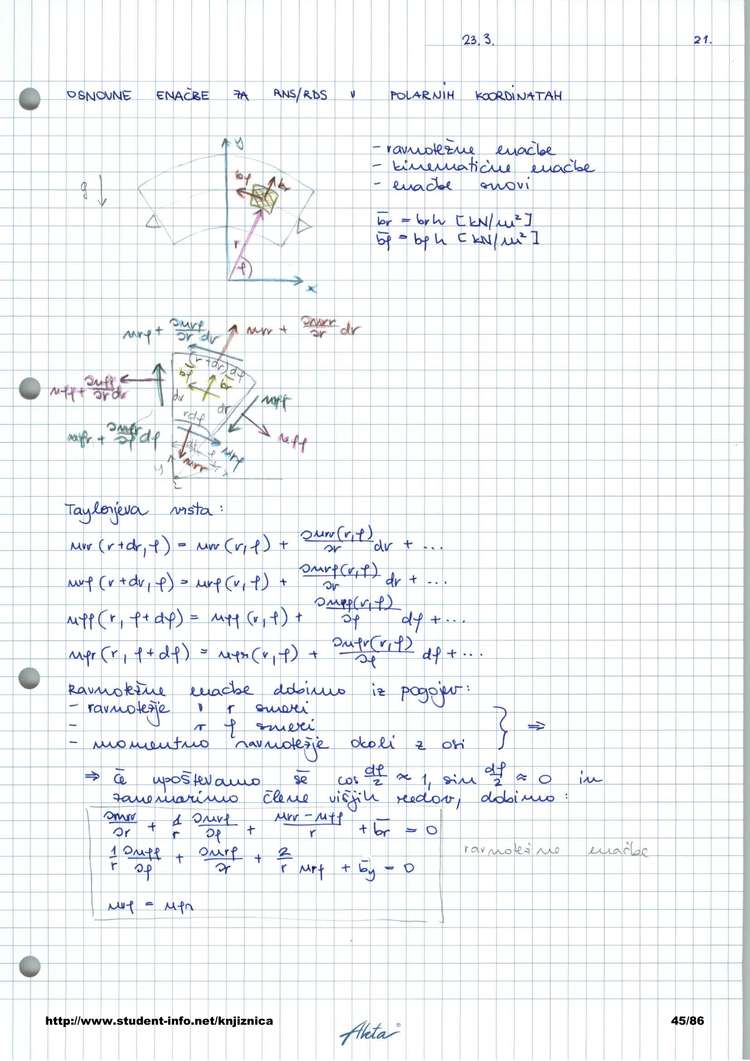 23.3. 21.
OSNOVNE ENAČBE ZA RNS/RDS V POLARNIH KOORDINATAH
- ravnotežne enačbe
- kinematične enačbe
- enačbe snovi
b̄r = br h [kN/m²]
b̄φ = bφ h [kN/m²]
y
bφ br
g
r
φ
x
nrφ + ∂nrφ/∂r dr
nrr + ∂nrr/∂r dr
(r+dr)dφ
b̄φ b̄r
nφφ + ∂nφφ/∂r dr
dr
dr
nφr
rdφ
nφr + ∂nφr/∂φ dφ
nrφ
nφφ
nrr
Taylorjeva vrsta:
nrr (r+dr, φ) = nrr (r, φ) + ∂nrr(r,φ)/∂r dr + ...
nrφ (r+dr, φ) = nrφ (r, φ) + ∂nrφ(r,φ)/∂r dr + ...
nφφ (r, φ+dφ) = nφφ (r, φ) + ∂nφφ(r,φ)/∂φ dφ + ...
nφr (r, φ+dφ) = nφr (r, φ) + ∂nφr(r,φ)/∂φ dφ + ...
Ravnotežne enačbe dobimo iz pogojev:
- ravnotežje v r smeri
- v φ smeri
- momentno ravnotežje okoli z osi } ⇒
⇒ Če upoštevamo še cos dφ/2 ≈ 1, sin dφ/2 ≈ 0 in
zanemarimo člene višjih redov, dobimo:
∂nrr/∂r + 1/r ∂nrφ/∂φ + (nrr - nφφ)/r + b̄r = 0
1/r ∂nφφ/∂φ + ∂nrφ/∂r + 2/r nrφ + b̄y = 0
ravnotežne enačbe
nrφ = nφr
http://www.student-info.net/knjiznica
Akta
45/86